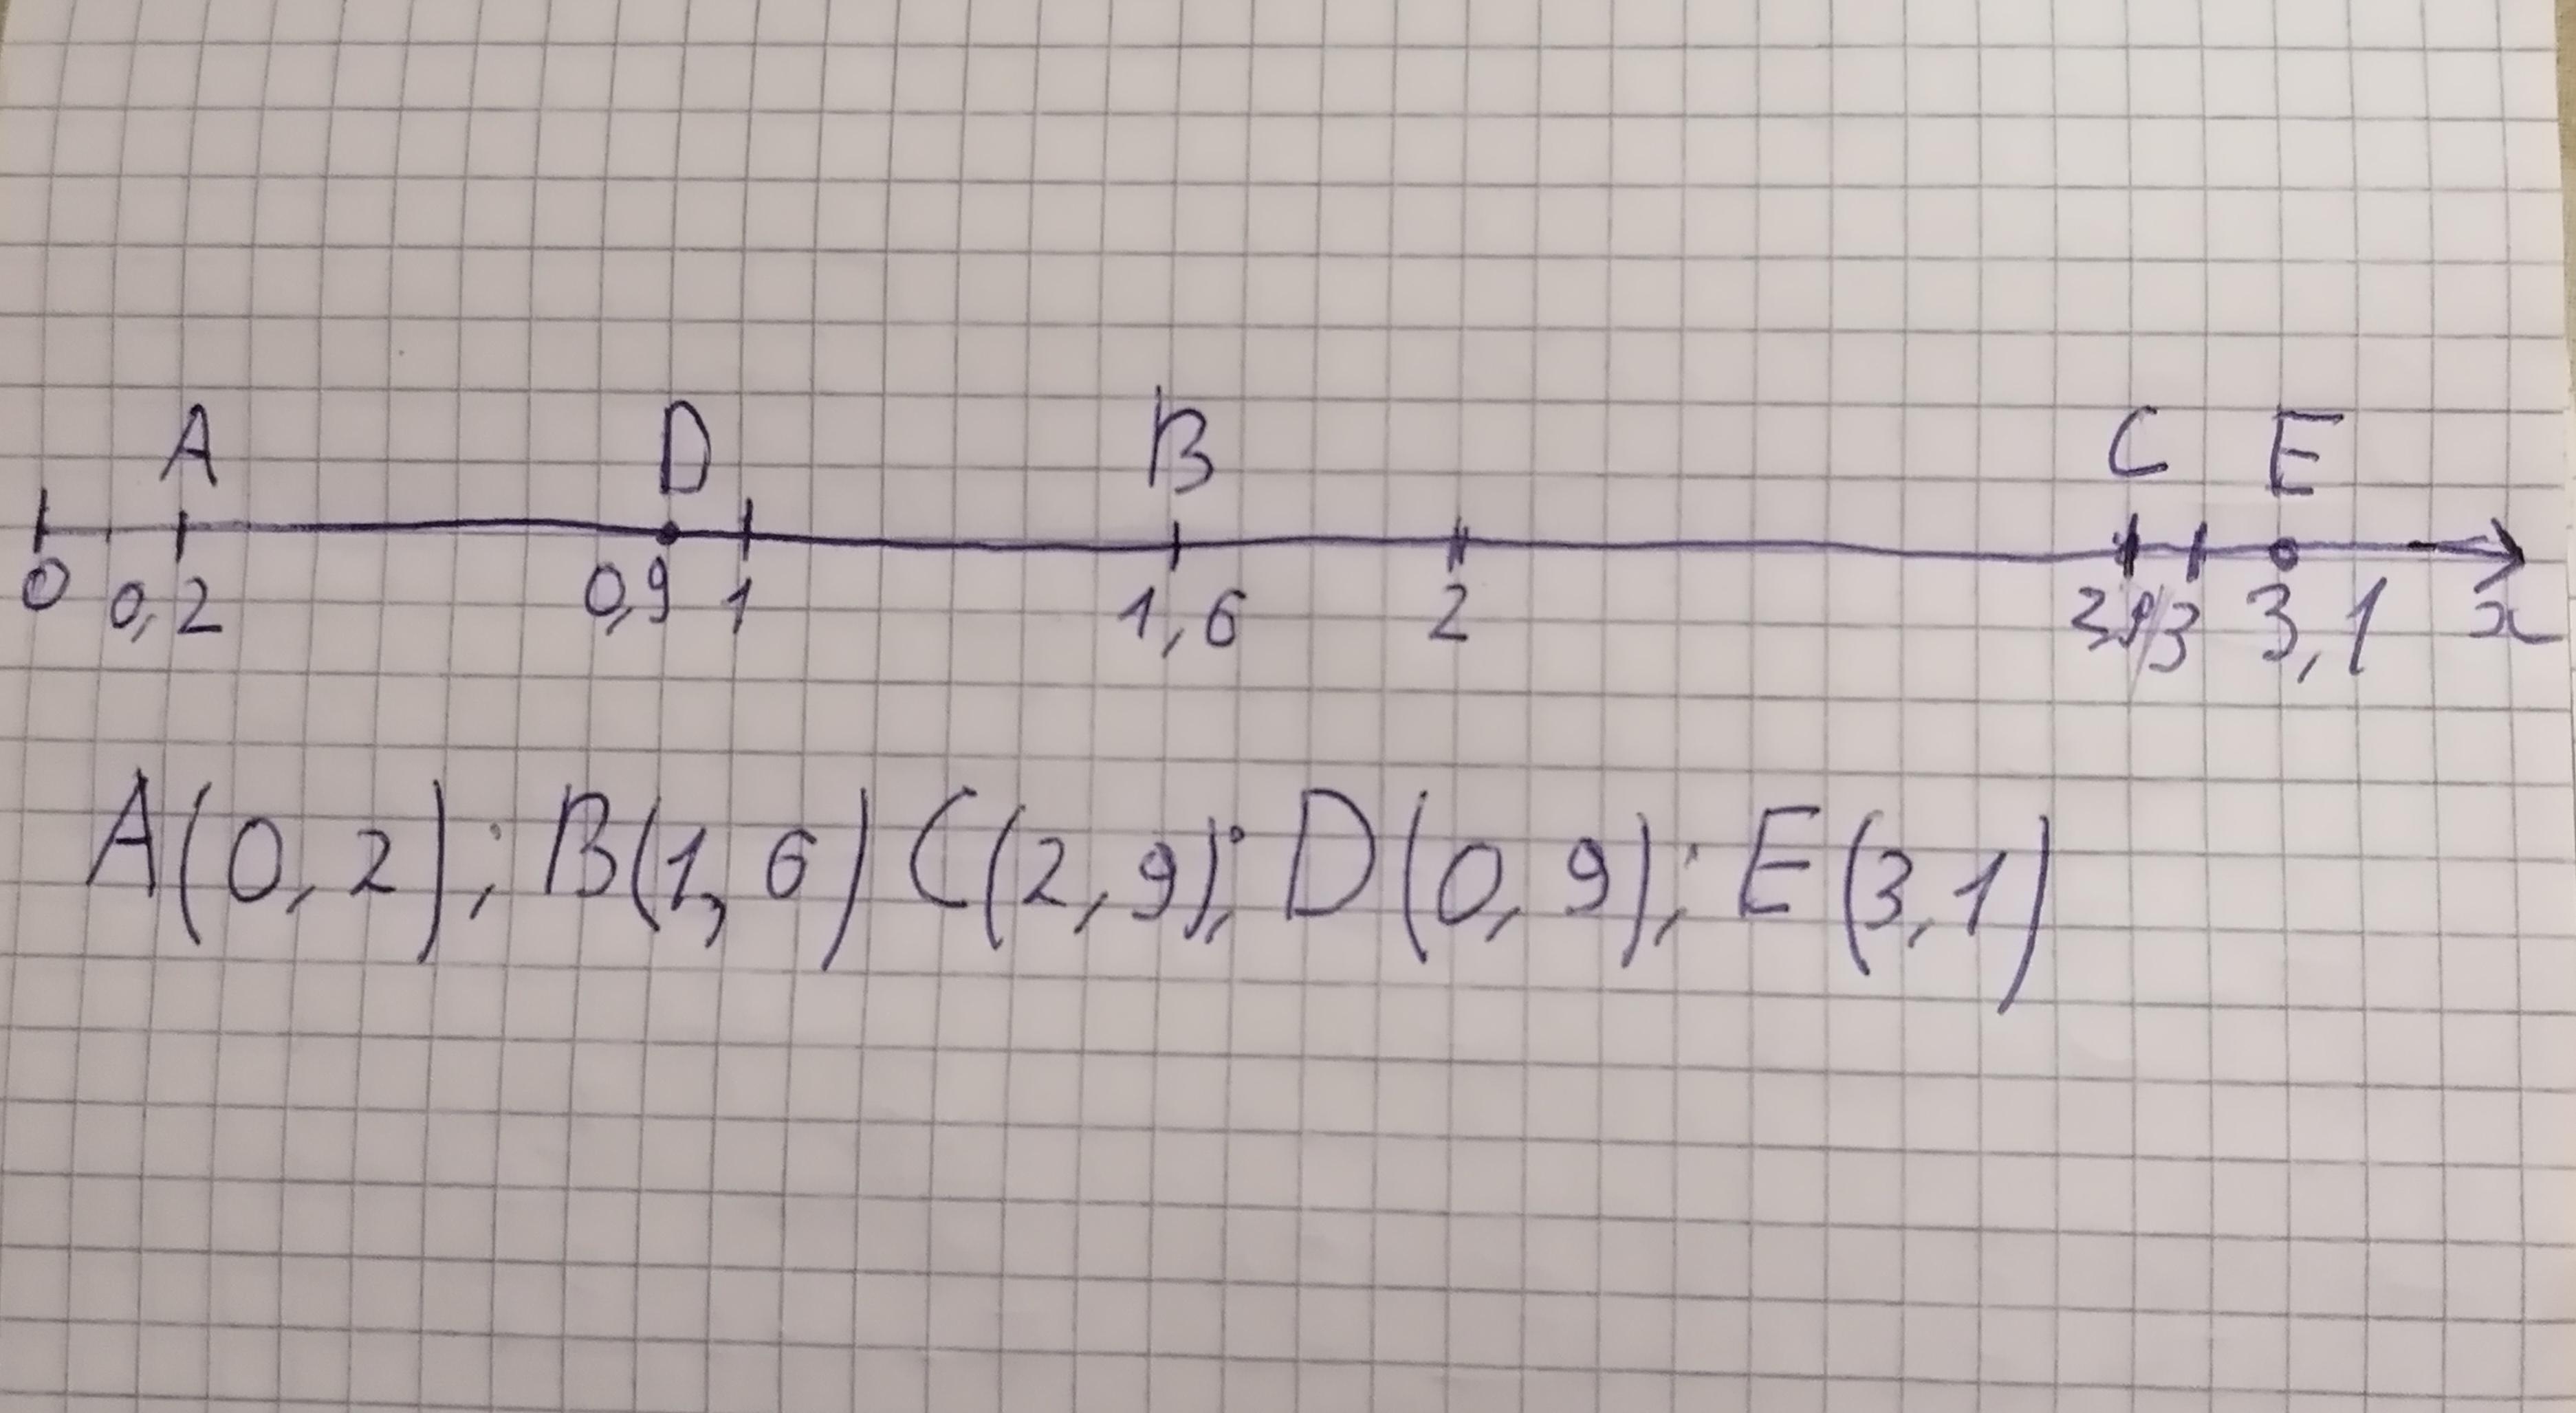 A D B C E
0 0,2 0,9 1 1,6 2 2,9 3 3,1 x
A(0,2); B(1,6) C(2,9); D(0,9); E(3,1)